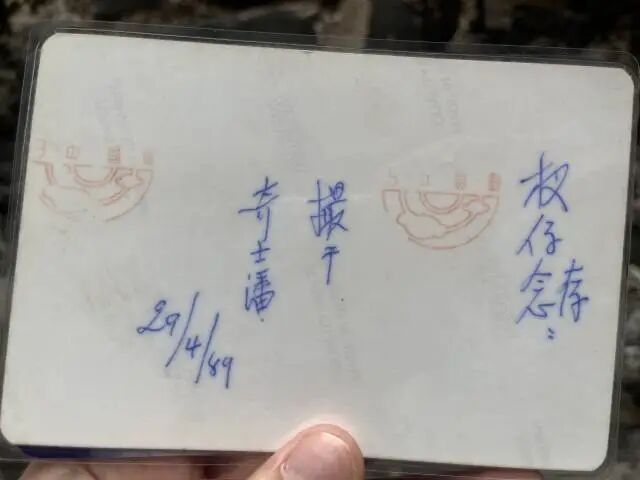 权仔存念:
撮于
奇士潘
29/4/89